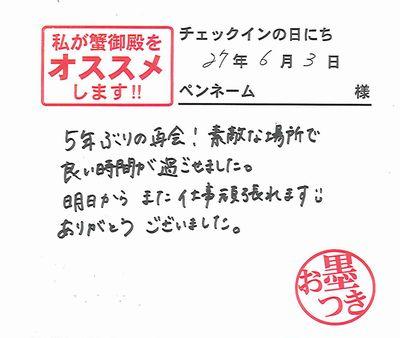 私が蟹御殿を
オススメ
します!!
チェックインの日にち
27年 6月 3日
ペンネーム 様
5年ぶりの再会!素敵な場所で
良い時間が過ごせました。
明日から また仕事頑張れます
ありがとう ございました。
お墨つき